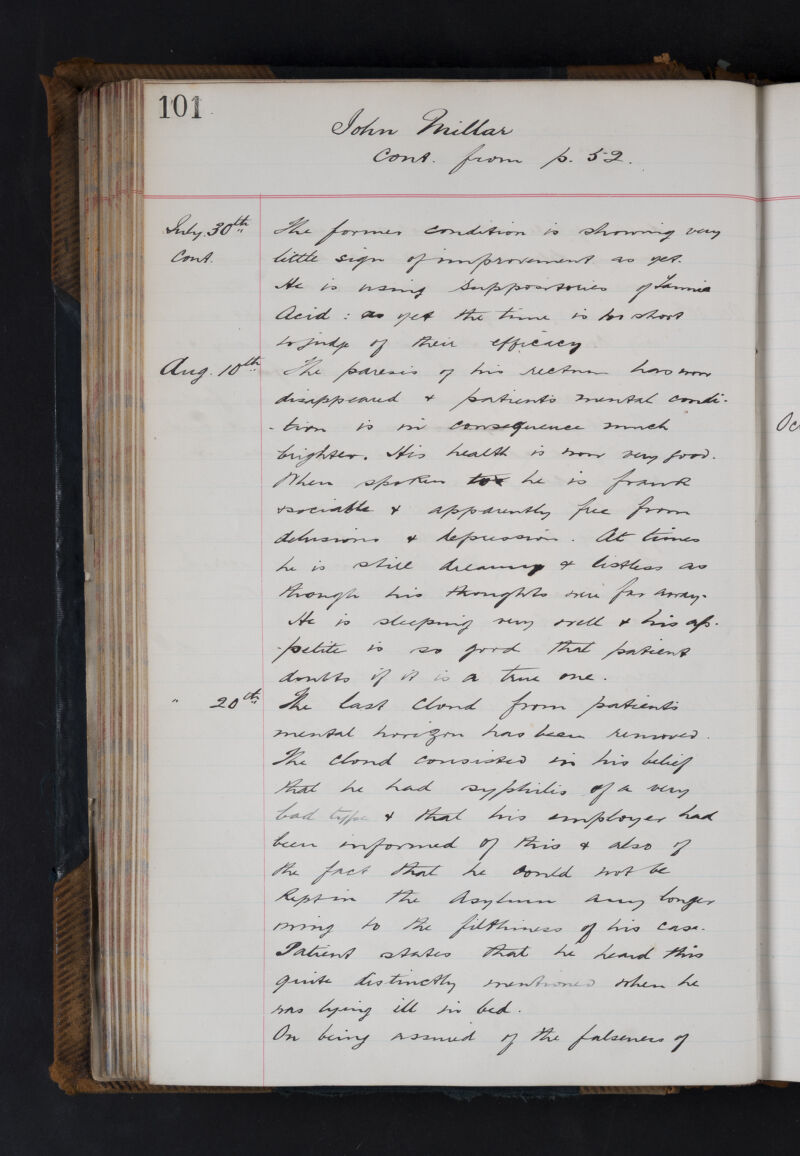 101
John Millar
Cont. from p. 52.
July 30th The former condition is showing very
Cont. little sign of improvement as yet.
He is using Suppositories of Tannic
Acid : as yet the time is too short
to judge of their efficacy.
Aug. 10th The paresis of his rectum has now
disappeared & patients mental condi-
-tion is in consequence much
brighter. His health is now very good.
When spoken to he is frank
& sociable & apparently free from
delusions & depression. At times
he is still dreamy & listless as
though his thoughts were far away.
He is sleeping very well & his ap-
-petite is so good that patient
doubts if it is a true one.
" 20th The last cloud from patients
mental horizon has been removed.
The cloud consisted in his belief
that he had syphilis of a very
bad type & that his employer had
been informed of this & also of
the fact that he could not be
kept in the Asylum any longer
owing to the filthiness of his case.
Patient states that he heard this
quite distinctly mentioned when he
was lying ill in bed.
On being assured of the falseness of
Oc